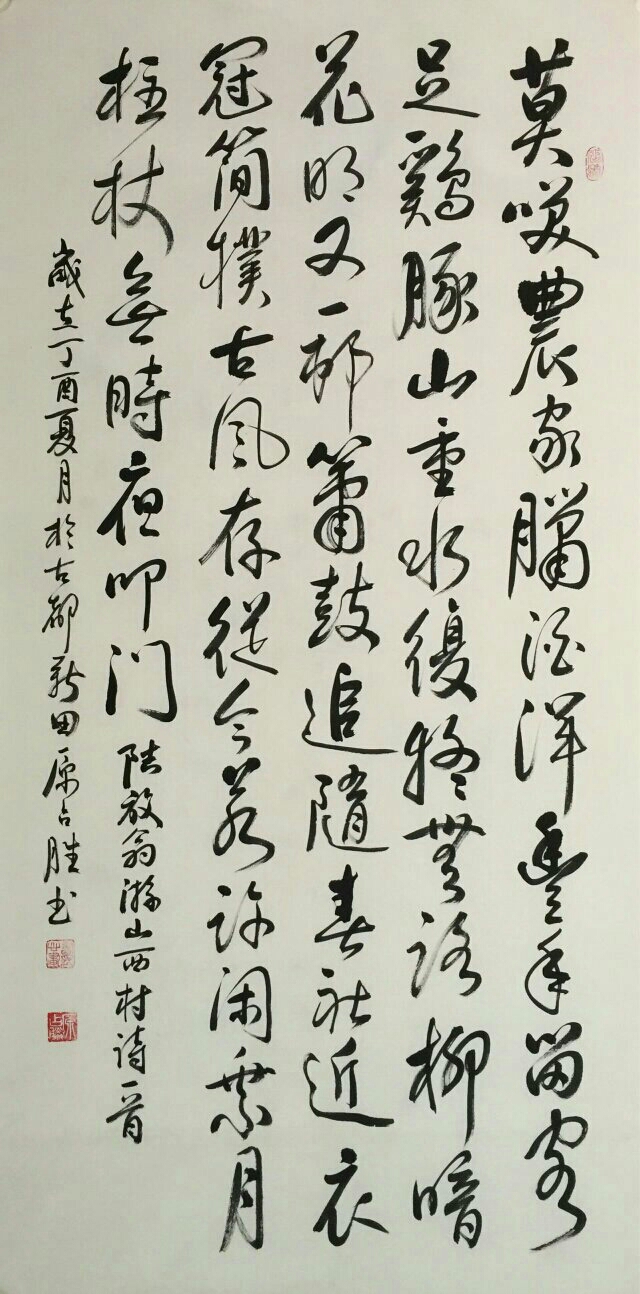 莫笑農家臘酒渾豐年留客
足鷄豚山重水復疑無路柳暗
花明又一邨簫鼓追隨春社近衣
冠簡樸古風存從今若許閑乘月
柱杖無時夜叩门陆放翁游山西村诗一首
歲在丁酉夏月於古都新田原占胜书